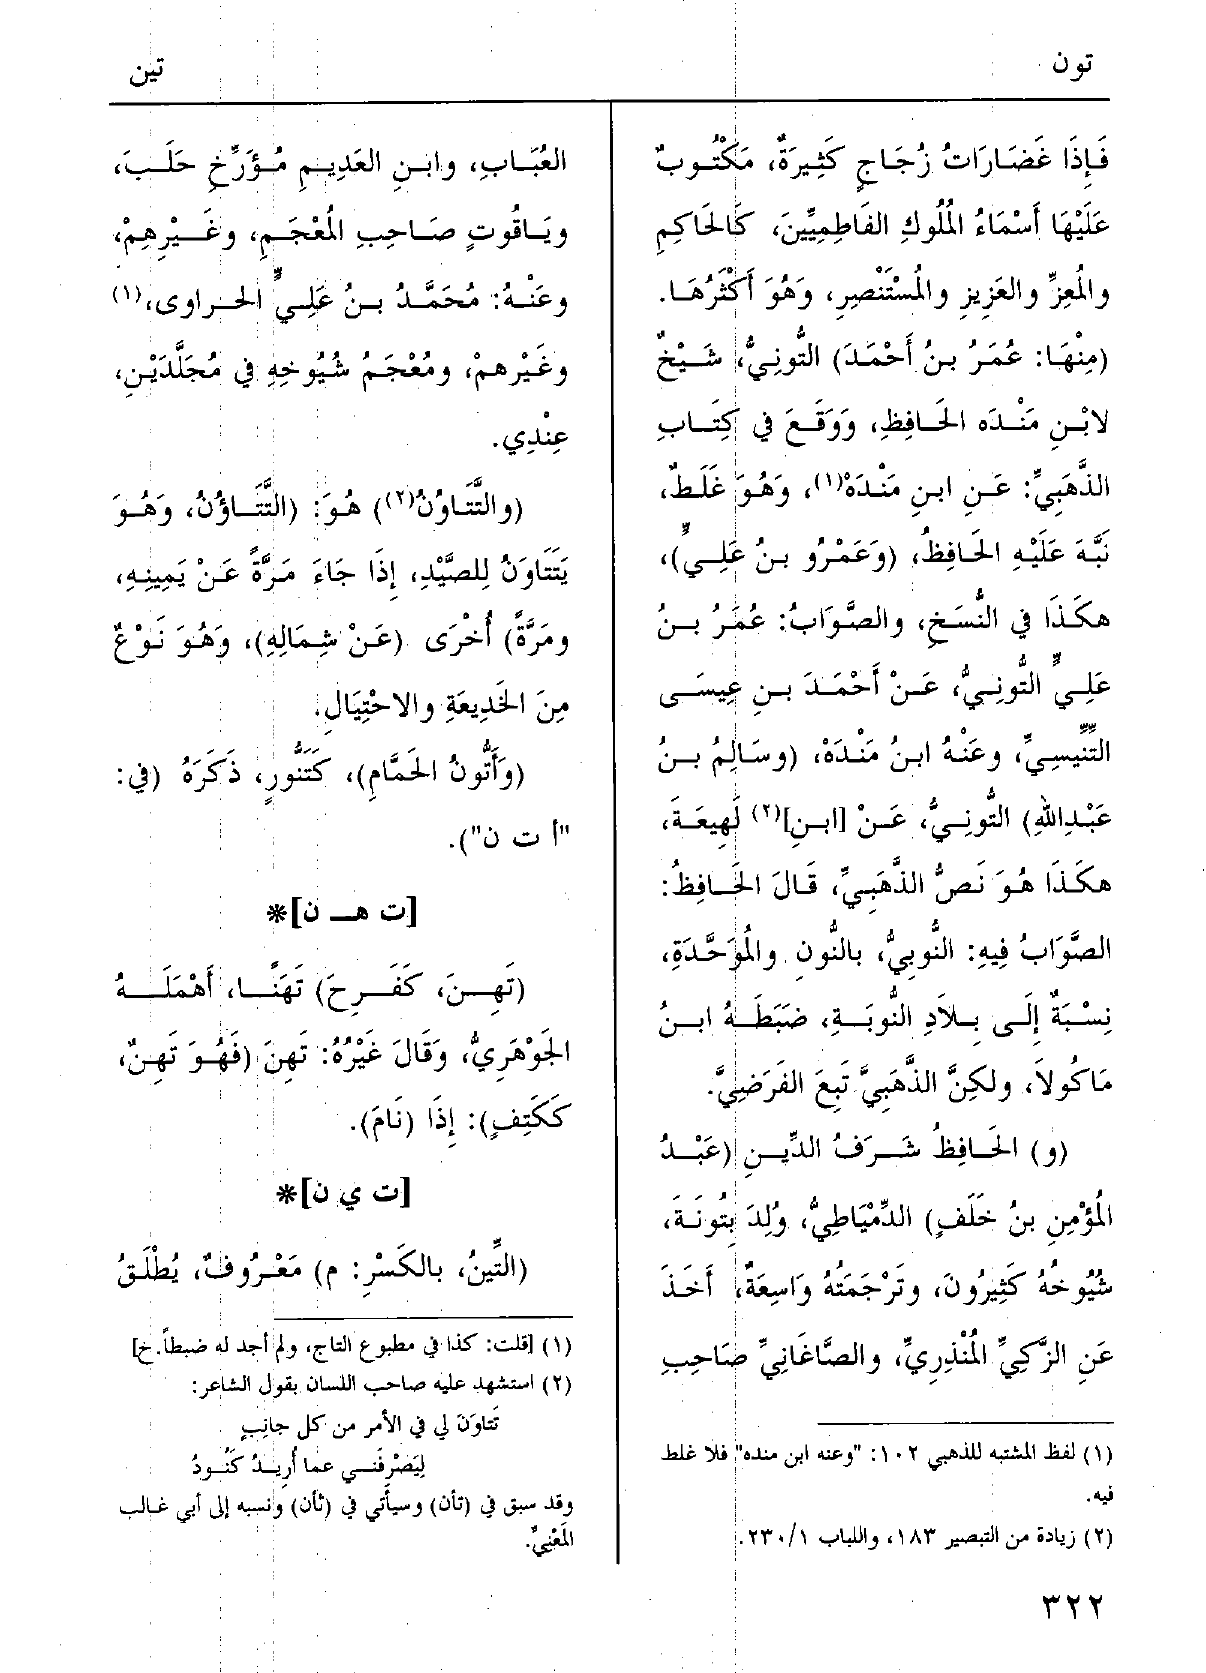 تون
تين
فَإِذَا غَضَارَاتُ زُجَاجٍ كَثِيرَةٌ، مَكْتُوبٌ
عَلَيْهَا أَسْمَاءُ المُلُوكِ الفَاطِمِيِّينَ، كَالحَاكِمِ
والمُعِزِّ والعَزِيزِ والمُسْتَنْصِرِ، وَهُوَ أَكْثَرُهَا.
(مِنْهَا: عُمَرُ بنُ أَحْمَدَ) التُّونِيُّ، شَيْخٌ
لابْنِ مَنْدَه الحَافِظِ، وَوَقَعَ في كِتَابِ
الذَّهَبِيِّ: عَنِ ابنِ مَنْدَهْ(١)، وَهُوَ غَلَطٌ،
نَبَّهَ عَلَيْهِ الحَافِظُ، (وَعَمْرُو بنُ عَلِيٍّ)،
هكَذَا في النُّسَخِ، والصَّوَابُ: عُمَرُ بنُ
عَلِيٍّ التُّونِيُّ، عَنْ أَحْمَدَ بنِ عِيسَى
التِّنِّيسِيِّ، وعَنْهُ ابنُ مَنْدَهْ، (وسَالِمُ بنُ
عَبْدِاللهِ) التُّونِيُّ، عَنْ [ابنِ](٢) لَهِيعَةَ،
هكَذَا هُوَ نَصُّ الذَّهَبِيِّ، قَالَ الحَافِظُ:
الصَّوَابُ فِيهِ: النُّوبِيُّ، بالنُّونِ والمُوَحَّدَةِ،
نِسْبَةٌ إِلَى بِلاَدِ النُّوبَةِ، ضَبَطَهُ ابنُ
مَاكُولاَ، ولكِنَّ الذَّهَبِيَّ تَبِعَ الفَرَضِيَّ.
(و) الحَافِظُ شَرَفُ الدِّينِ (عَبْدُ
المُؤْمِنِ بنُ خَلَفٍ) الدِّمْيَاطِيُّ، وُلِدَ بِتُونَةَ،
شُيُوخُهُ كَثِيرُونَ، وتَرْجَمَتُهُ وَاسِعَةٌ، أَخَذَ
عَنِ الزَّكِيِّ المُنْذِرِيِّ، والصَّاغَانِيِّ صَاحِبِ
(١) لفظ المشتبه للذهبي ١٠٢: "وعنه ابن منده" فلا غلط
فيه.
(٢) زيادة من التبصير ١٨٣، واللباب ٢٣٠/١.
العُبَابِ، وابنِ العَدِيمِ مُؤَرِّخِ حَلَبَ،
ويَاقُوتٍ صَاحِبِ المُعْجَمِ، وغَيْرِهِمْ،
وعَنْهُ: مُحَمَّدُ بنُ عَلِيٍّ الحراوى،(١)
وغَيْرهمْ، ومُعْجَمُ شُيُوخِهِ في مُجَلَّدَيْنِ،
عِنْدِي.
(والتَّتَاوُنُ(٢)) هُوَ: (التَّتَاؤُنُ، وَهُوَ
يَتَتَاوَنُ لِلصَّيْدِ، إِذَا جَاءَ مَرَّةً عَنْ يَمِينِهِ،
ومَرَّةً) أُخْرَى (عَنْ شِمَالِهِ)، وَهُوَ نَوْعٌ
مِنَ الخَدِيعَةِ والاحْتِيَالِ.
(وَأَتُّونُ الحَمَّامِ)، كَتَنُّورٍ، ذَكَرَهُ (في:
"أ ت ن").
[ت هـ ن]*
(تَهِنَ، كَفَرِحَ) تَهَنًا، أَهْمَلَهُ
الجَوْهَرِيُّ، وَقَالَ غَيْرُهُ: تَهِنَ (فَهُوَ تَهِنٌ،
كَكَتِفٍ): إِذَا (نَامَ).
[ت ي ن]*
(التِّينُ، بالكَسْرِ: م) مَعْرُوفٌ، يُطْلَقُ
(١) [قلت: كذا في مطبوع التاج، ولم أجد له ضبطاً.خ]
(٢) استشهد عليه صاحب اللسان بقول الشاعر:
تَتاوَنَ لي في الأمر من كل جانبٍ
لِيَصْرِفَني عما أُرِيدُ كَنُودُ
وقد سبق في (تأن) وسيأتي في (ثأن) ونسبه إلى أبي غالب
المَعْنِيِّ.
٣٢٢